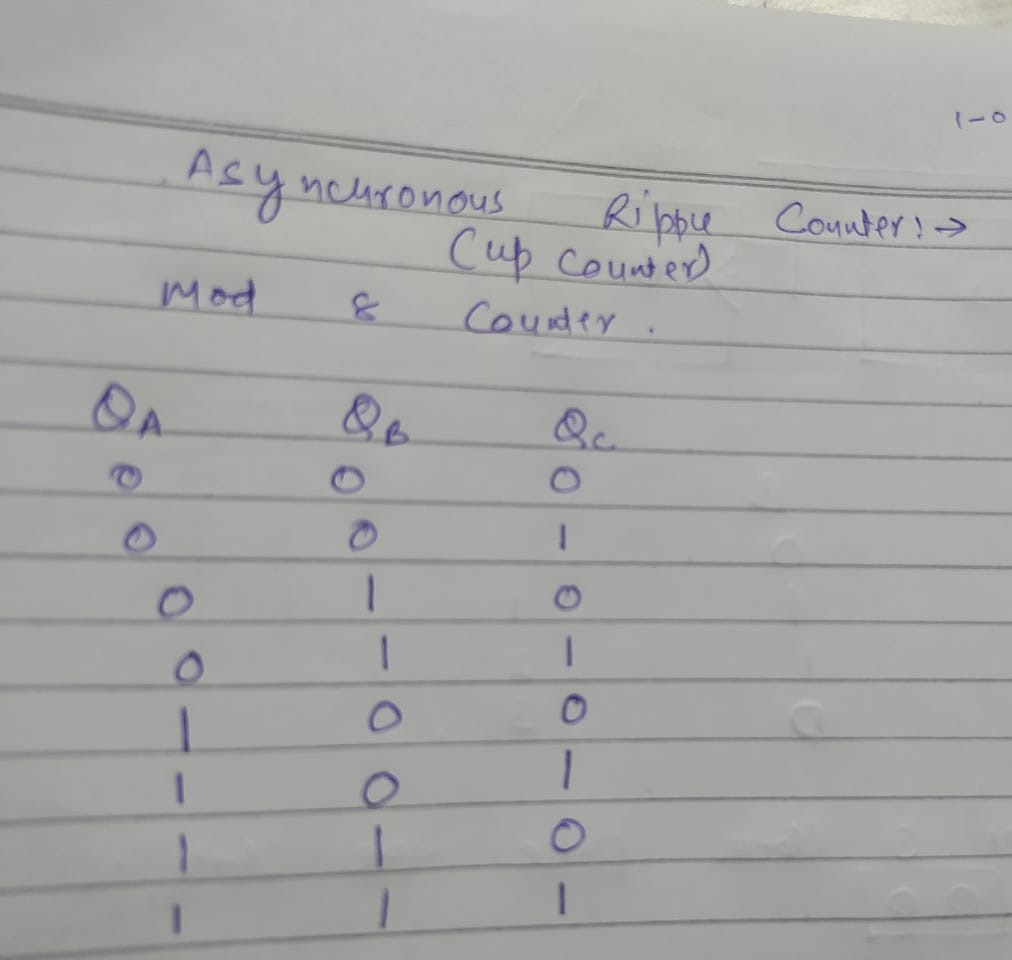 1-0
Asynchronous Ripple Counter:→
(up counter)
Mod 8 Counter.
QA QB QC
0 0 0
0 0 1
0 1 0
0 1 1
1 0 0
1 0 1
1 1 0
1 1 1